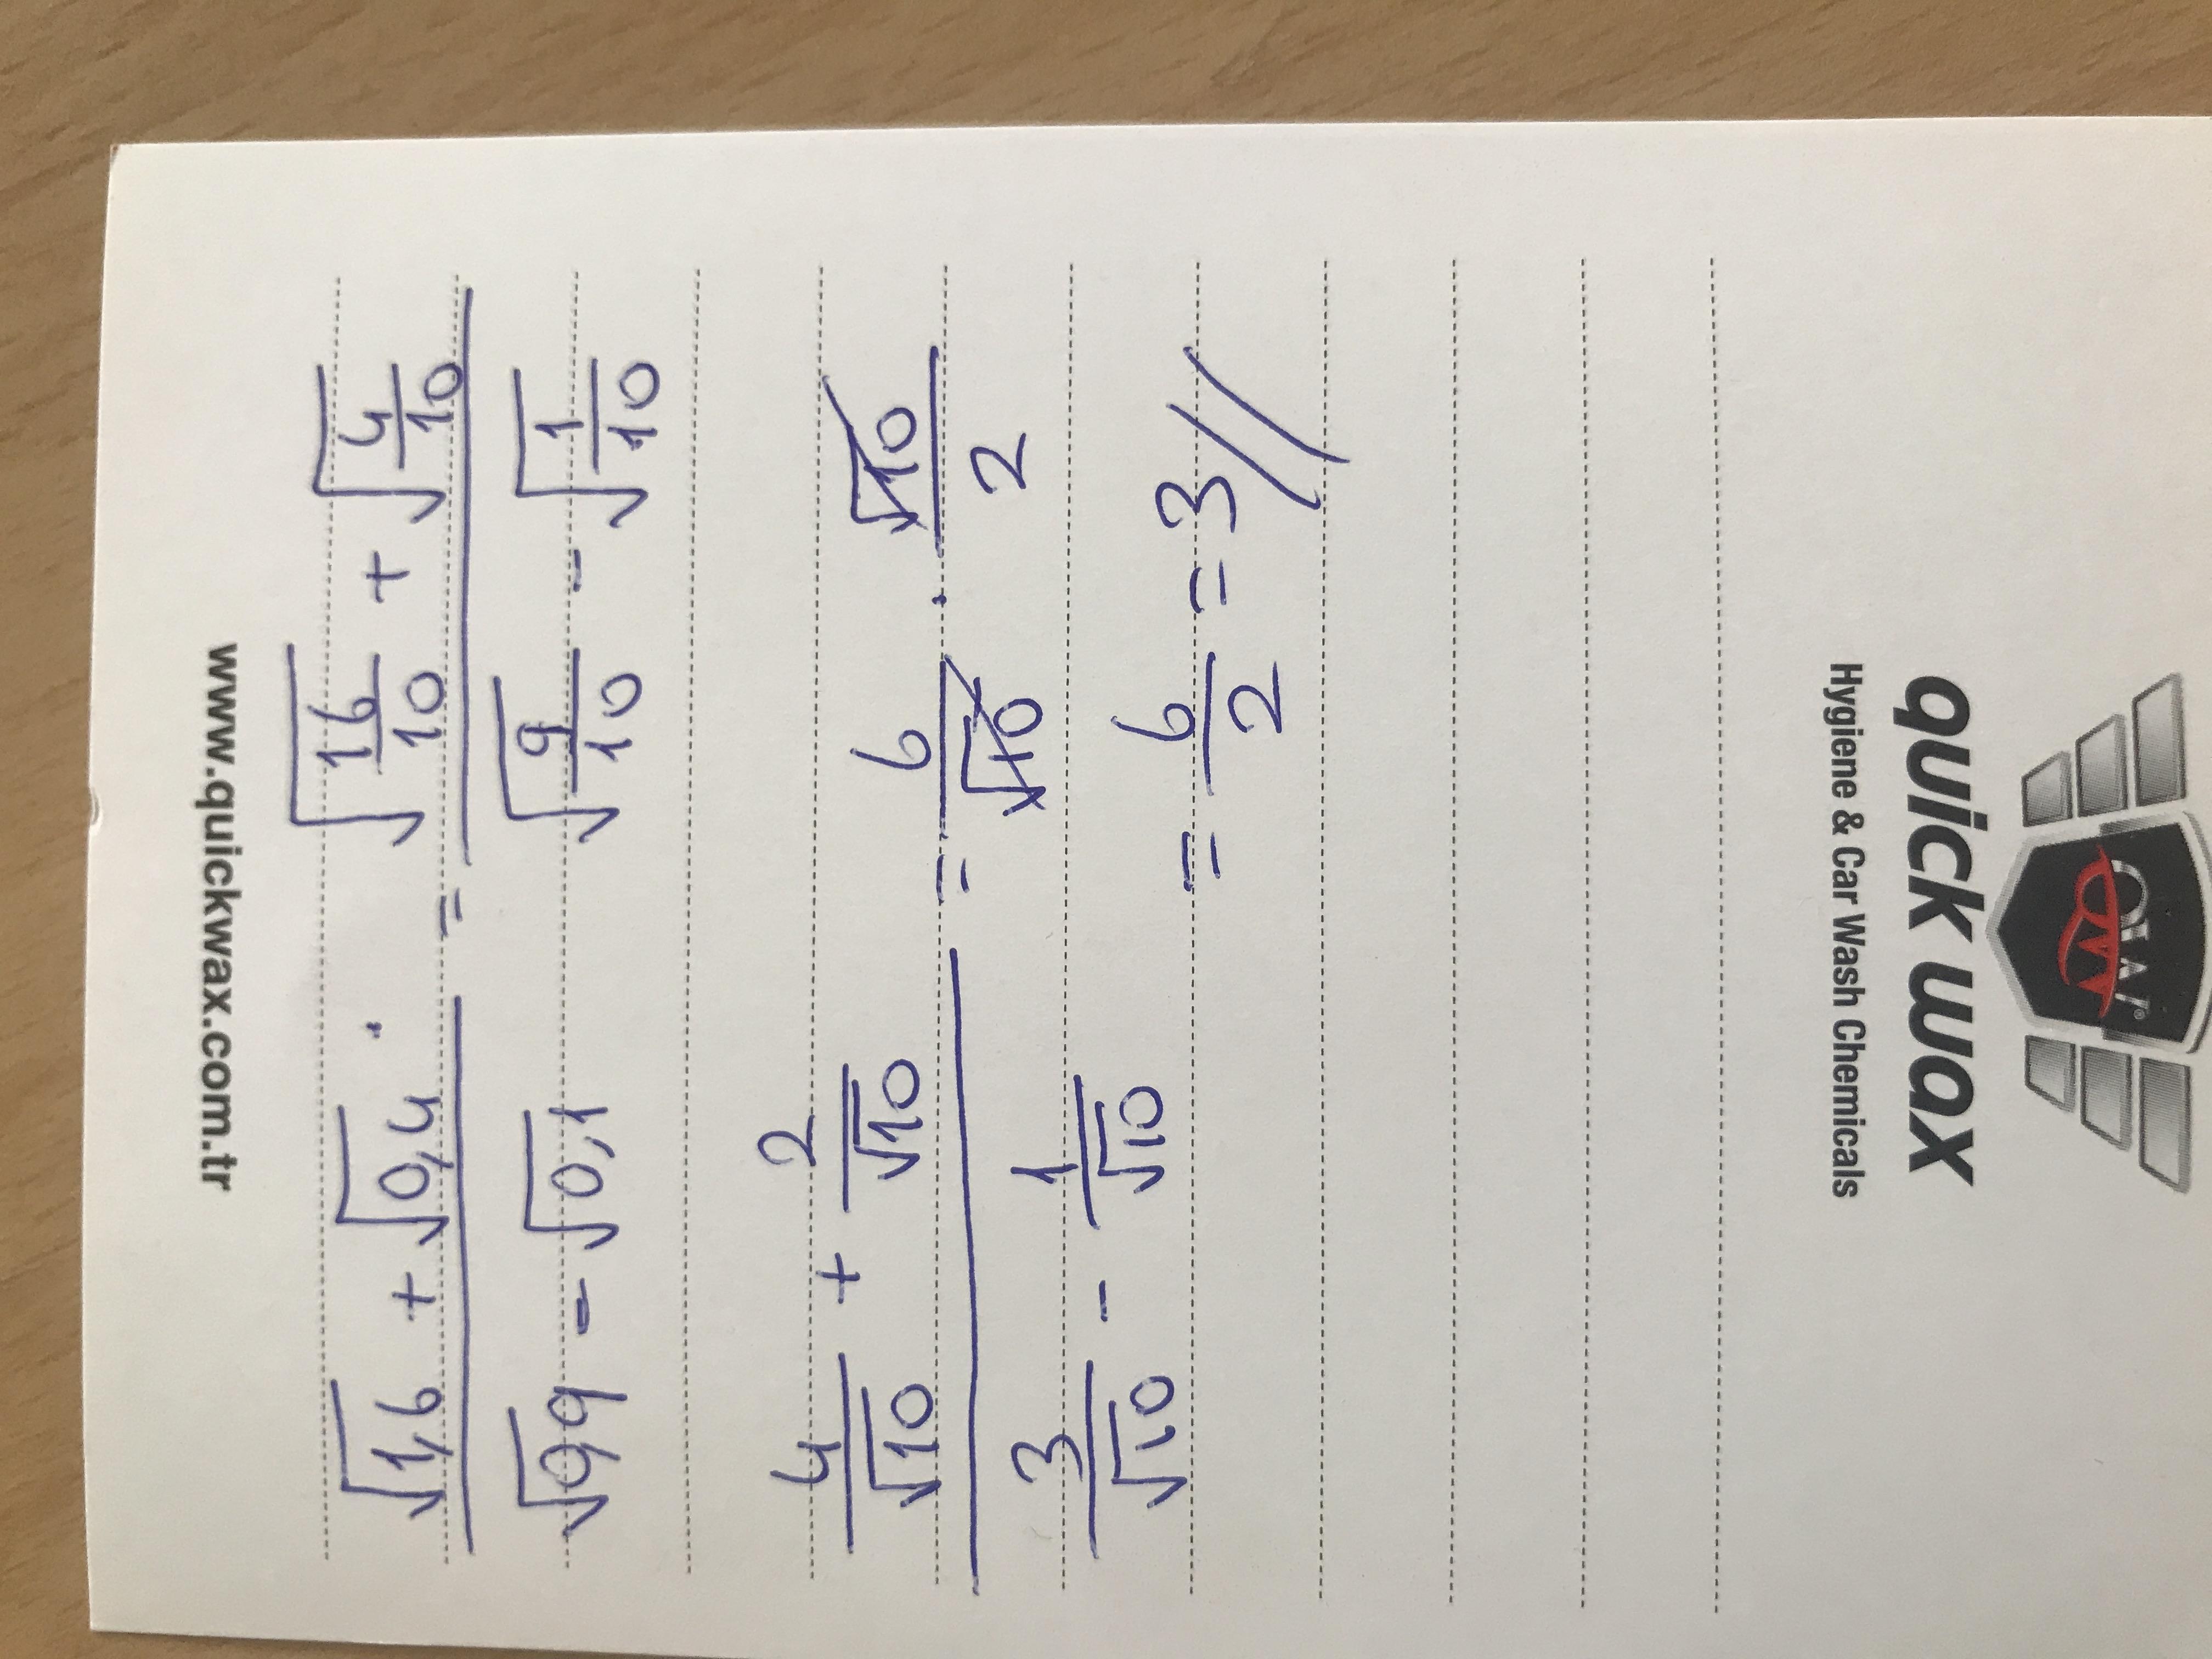 www.quickwax.com.tr
(√1,6 + √0,4) / (√0,9 - √0,1) = (√(16/10) + √(4/10)) / (√(9/10) - √(1/10))
(4/√10 + 2/√10) / (3/√10 - 1/√10) = 6/√10 · √10/2
= 6/2 = 3//
Hygiene & Car Wash Chemicals
quick wax
QW®